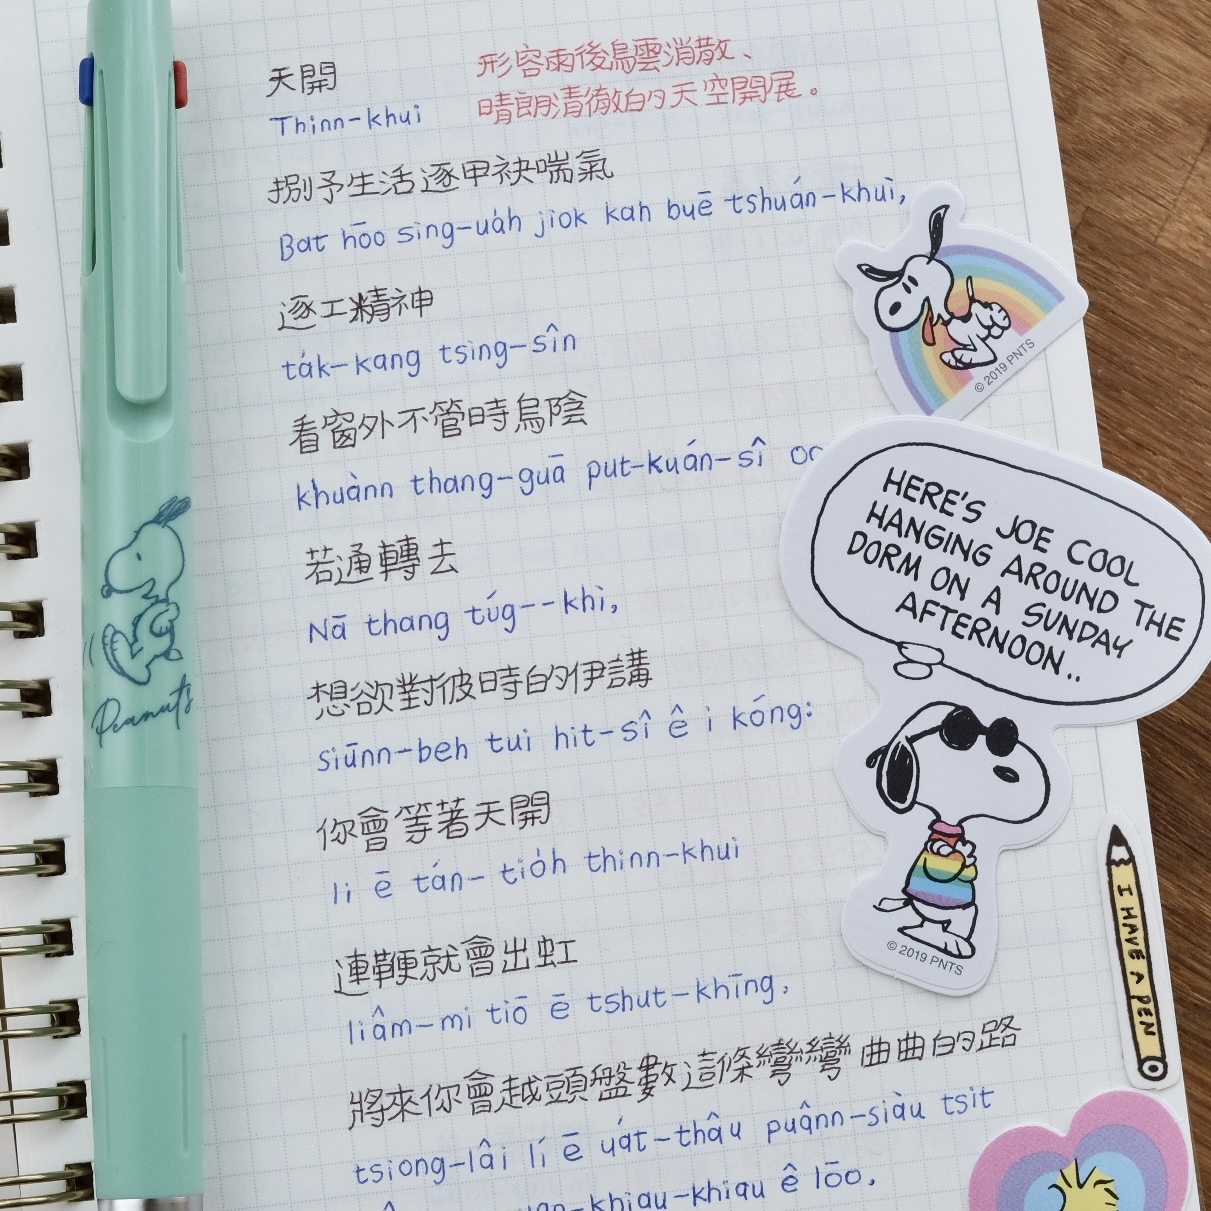 天開
形容雨後烏雲消散、
晴朗清徹的天空開展。
Thinn-khui
捌予生活逐甲袂喘氣
Bat hōo sing-ua̍h jiok kah buē tshuán-khuì,
逐工精神
ta̍k-kang tsing-sîn
看窗外不管時烏陰
khuànn thang-guā put-kuán-sî
若通轉去
Nā thang túg--khì,
想欲對彼時的伊講
siūnn-beh tui hit-sî ê i kóng:
你會等著天開
li ē tán-tio̍h thinn-khui
連鞭就會出虹
liâm-mi tiō ē tshut-khīng,
將來你會越頭盤數這條彎彎曲曲的路
tsiong-lâi lí ē ua̍t-thâu puânn-siàu tsit
-khiau-khiau ê lōo.
Peanuts
© 2019 PNTS
HERE'S JOE COOL
HANGING AROUND THE
DORM ON A SUNDAY
AFTERNOON..
© 2019 PNTS
I HAVE A PEN